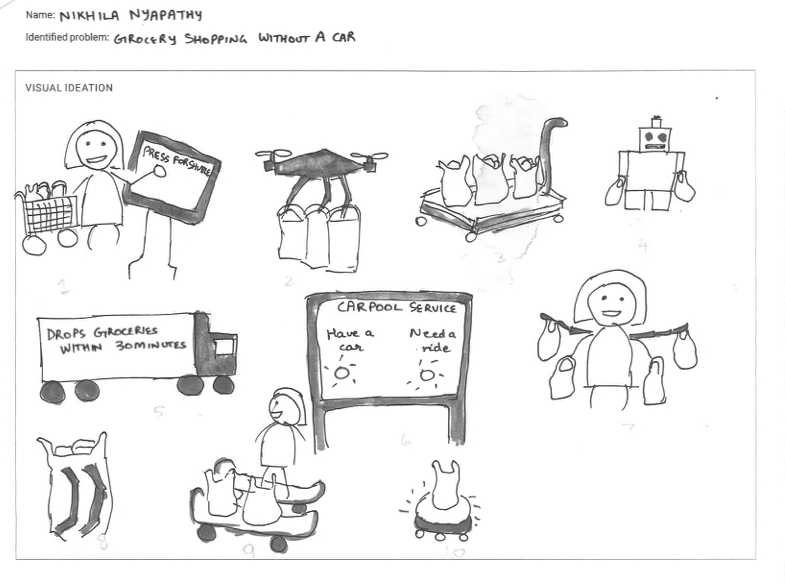 Name: NIKHILA NYAPATHY
Identified problem: GROCERY SHOPPING WITHOUT A CAR
VISUAL IDEATION
PRESS FOR SHUTTLE
1
2
3
4
DROPS GROCERIES
WITHIN 30 MINUTES
5
CARPOOL SERVICE
Have a
car
Need a
ride
6
7
8
9
10